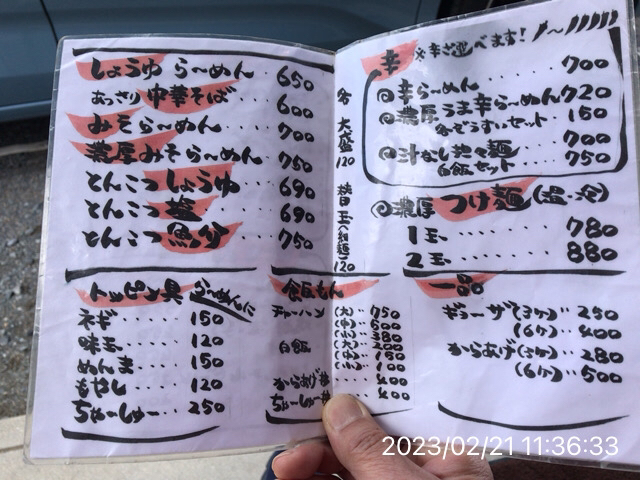 しょうゆ らーめん・650
あっさり中華そば・・600
みそらーめん・・・700
濃厚みそらーめん・・750
とんこつしょうゆ・・・690
とんこつ塩・・・・690
とんこつ魚介・・・750
各 大盛 120
替玉(細麺) 120
トッピン具 らーめんに
ネギ・・・・150
味玉・・・・120
めんま・・・150
もやし・・・120
ちゃーしゅー・・・250
飯もん
チャーハン (大)・・750
(中)・・600
(小)・・380
白飯 (大)・・200
(中)・・150
(小)・・100
からあげ丼・・・400
ちゃーしゅー丼・・400
辛 ※辛さ選べます!
◎辛らーめん・・・・・700
◎濃厚うま辛らーめん720
ぞうすいセット・・150
◎汁なし担々麺・・・700
白飯セット・・・750
◎濃厚つけ麺(温・冷)
1玉・・・・・780
2玉・・・・・880
一品
ギョーザ(3ケ)・・250
(6ケ)・・400
からあげ(3ケ)・・280
(6ケ)・・500
2023/02/21 11:36:33